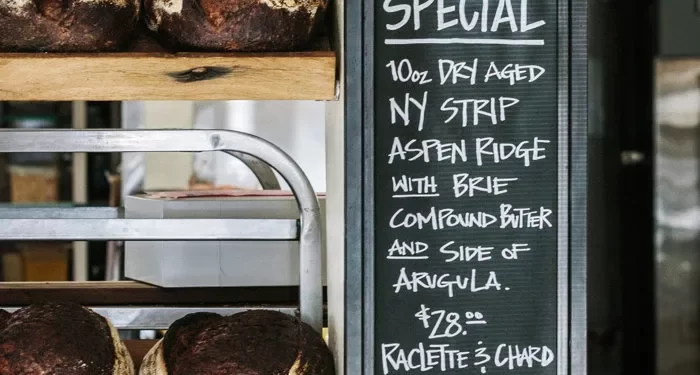 SPECIAL
10oz DRY AGED
NY STRIP
ASPEN RIDGE
WITH BRIE
COMPOUND BUTTER
AND SIDE OF
ARUGULA.
$28.00
RACLETTE & CHARD